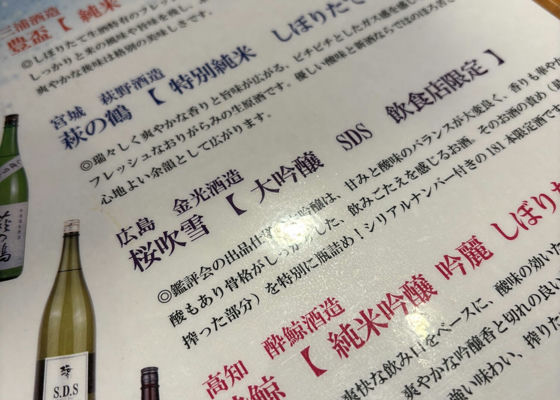 三浦酒造
豊盃【純米 しぼりたて
◎しぼりたて生酒特有のフレッシ
しっかりと米の旨味や
爽やかな後味は格別の美味しさです。
宮城 萩野酒造
萩の鶴【特別純米 しぼりたて
◎瑞々しく爽やかな香りと旨味が広がる、ピチピチとしたガス感を感じ
フレッシュなおりがらみの生原酒です。優しい酸味と新酒ならではのほろ苦さ
心地よい余韻として広がります。
広島 金光酒造
桜吹雪【大吟醸 SDS 飲食店限定】
◎鑑評会の出品仕様の大吟醸は、甘みと酸味のバランスが大変良く、香りも華やか
酸もあり骨格がしっかりした、飲みごたえを感じるお酒。そのお酒の責め
搾った部分）を特別に瓶詰め！シリアルナンバー付きの181本限定酒です
高知 酔鯨酒造
鯨【純米吟醸 吟麗 しぼり
爽快な飲み口をベースに、酸味の効いた
爽やかな吟醸香と切れの良い
強い味わい、搾りた
萩の鶴
S.D.S